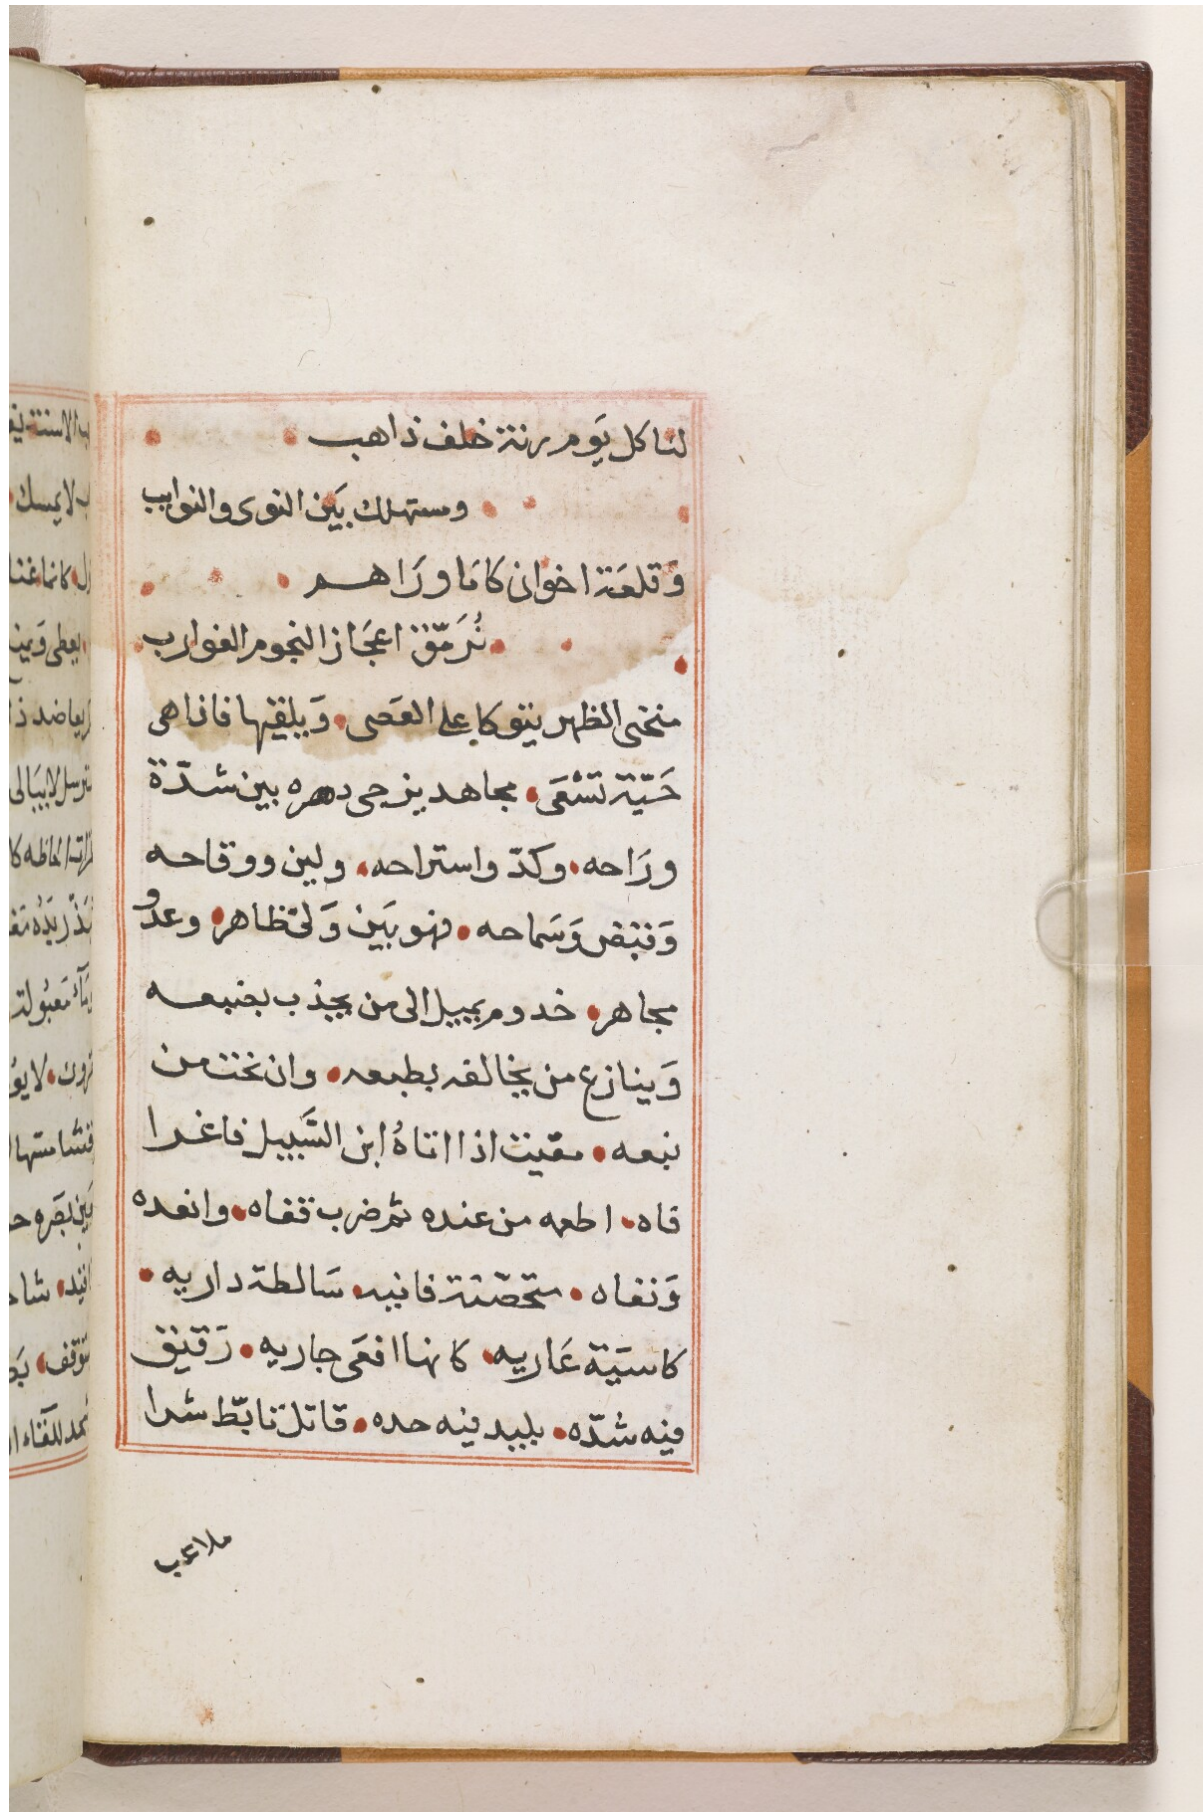 لنا كل يَوم رنة خلف ذاهب
ومستهلك بَين النوى والنوايب
وَقلعَة اخوانى كامَا ورَاهم
نُرَمّق اعجَاز النجوم الغوارب
منحنى الظهر يتوكا على العَصى • وَيلقيها فاذا هى
حَيّة تسْعَى • مجاهد يزجى دهره بين شدّة
ورَاحه • وكدّ واستراحه • ولين ووقاحه
وَقبَض وَسَماحه • فهو بَين وَلىّ ظاهر • وعدو
مجاهر • خدوم يميل الى من يجذب بضبعه
وَينازع من يخالفه بطبعه • وان نحت من
نبعه • مقيت اذا اتاهُ ابن السَّبيل فاغرا
فاه • اطعمه من عنده ثم ضرب قفاه • وانعده
وَنفاه • متحصّنة فانيه • سَالطة داريه •
كاسيَة عَاريه • كانها افعَى جاريه • رَقيق
فيه شدّه • بليد فيه حده • قاتل تابّط شرا
ملاعب
ب الاسنة
ب لا يمسك
كانما غنا
يعطى وَيمن
يعاضد ذ
ترسل لا يبَالى
الحاظه كا
مَقبُولة
لا يو
بَين بصَره
يتوقف • بَط